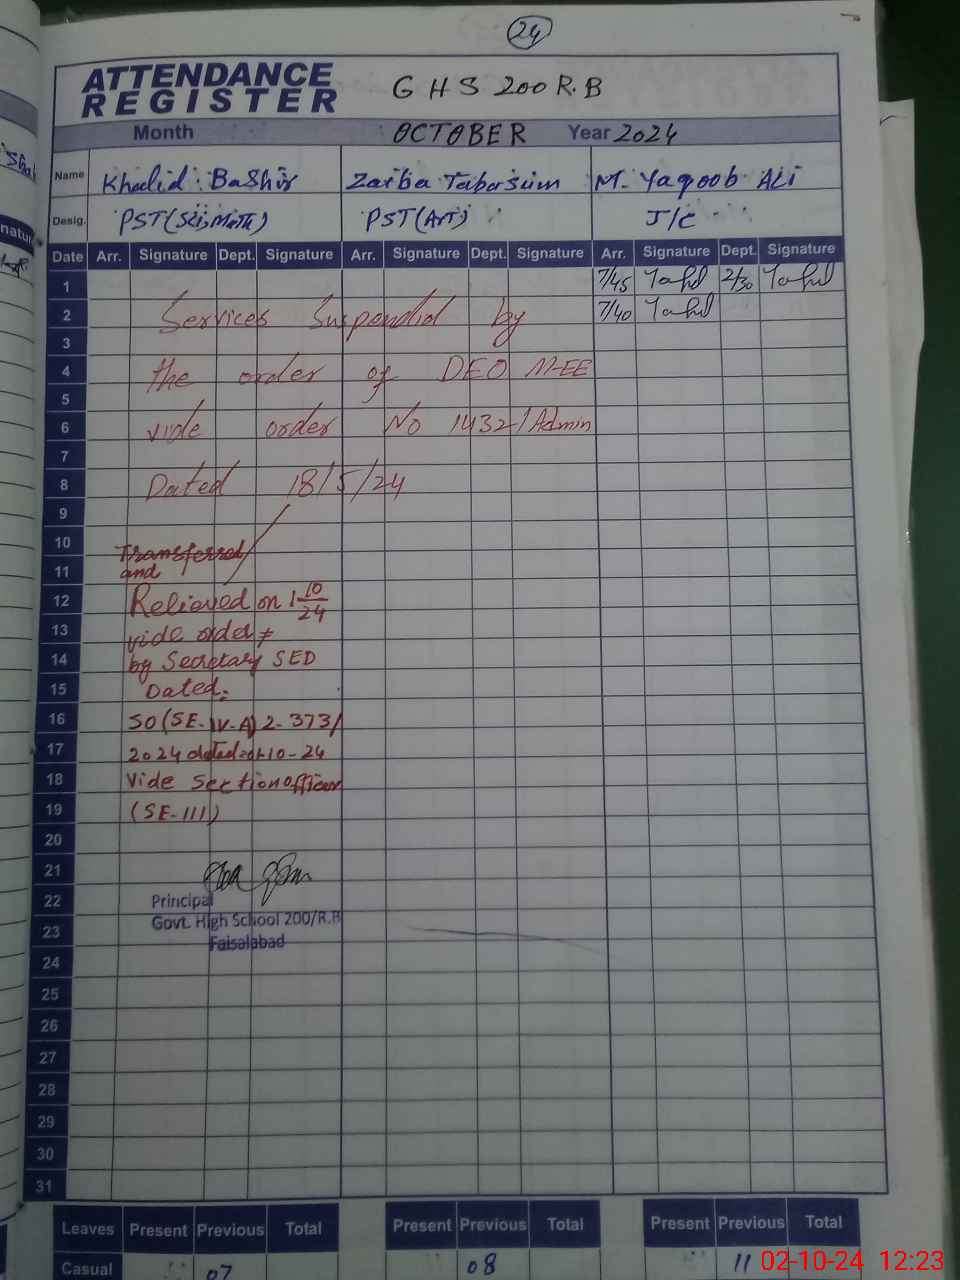 24
ATTENDANCE
REGISTER
G H S 200 R.B
Month OCTOBER Year 2024
Name Khalid Bashir Zaiba Tabassum M. Yaqoob Ali
Desig. PST(Sci,Math) PST(Art) J/C
Date Arr. Signature Dept. Signature Arr. Signature Dept. Signature Arr. Signature Dept. Signature
1 7/45 2/30
2 Services Suspended by 7/40
3
4 the order of DEO M-EE
5
6 vide order No 1432/Admin
7
8 Dated 18/5/24
9
10 Transferred
11 and
12 Relieved on 1 10/24
13 vide order #
14 by Secretary SED
15 Dated:
16 SO(SE-IV-A) 2-373/
17 2024 dated 01-10-24
18 Vide Section officer
19 (SE-III)
20
21
22 Principal
Govt. High School 200/R.B
23 Faisalabad
24
25
26
27
28
29
30
31
Leaves Present Previous Total Present Previous Total Present Previous Total
Casual 07 08 11
02-10-24 12:23